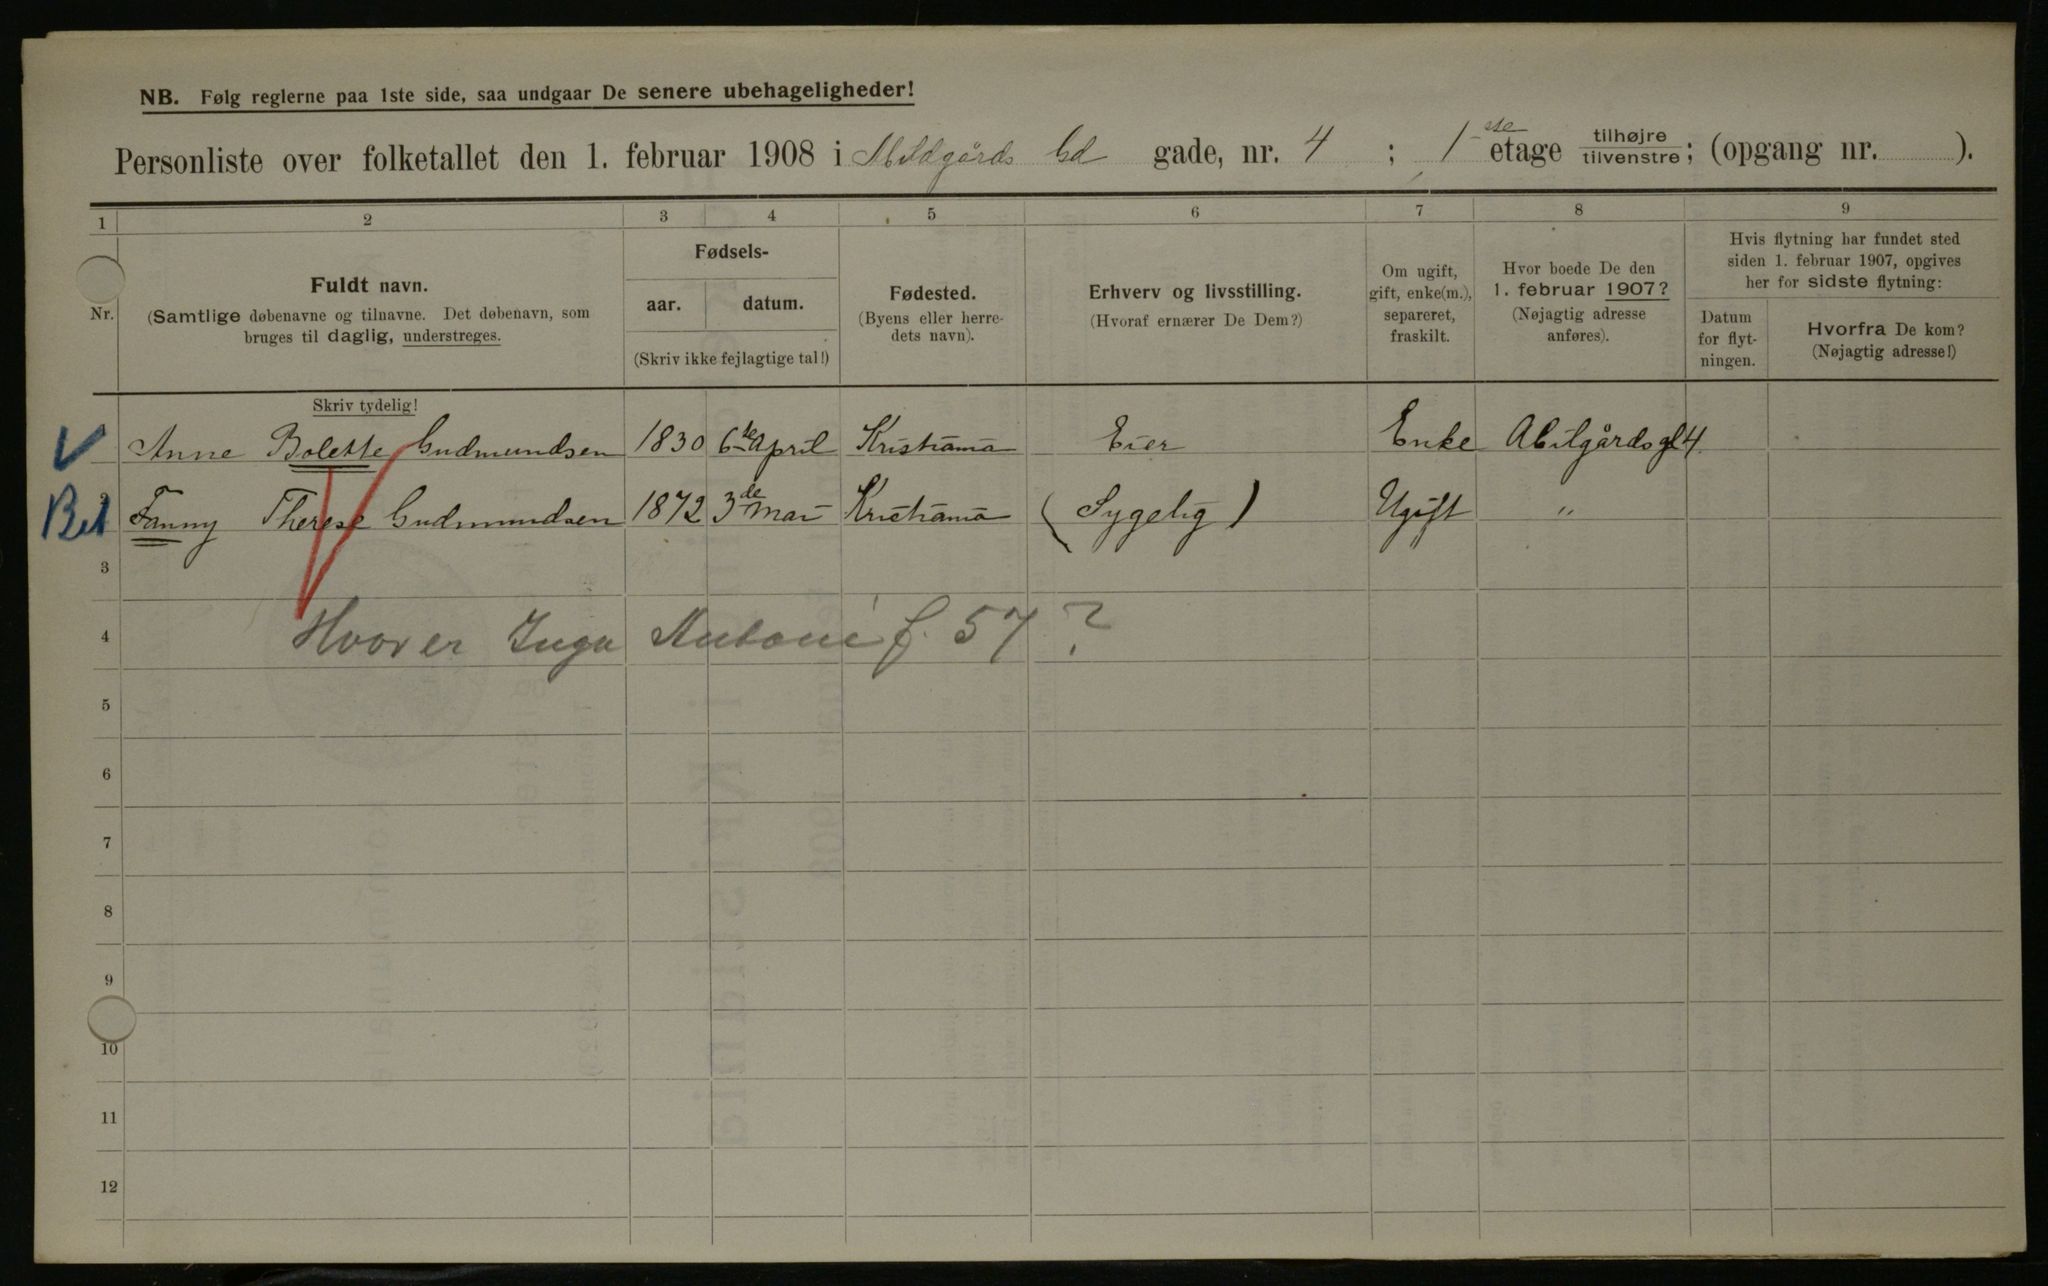 NB. Følg reglerne paa 1ste side, saa undgaar De senere ubehageligheder!
Personliste over folketallet den 1. februar 1908 i Abildgårds Gd gade, nr. 4 ; 1 sse etage tilhøjre tilvenstre; (opgang nr. ).
1 2 3 4 5 6 7 8 9
Nr.
Fuldt navn.
(Samtlige døbenavne og tilnavne. Det døbenavn, som
bruges til daglig, understreges.
Fødsels-
aar. datum.
(Skriv ikke fejlagtige tal!)
Fødested.
(Byens eller herre-
dets navn).
Erhverv og livsstilling.
(Hvoraf ernærer De Dem?)
Om ugift,
gift, enke(m.),
separeret,
fraskilt.
Hvor boede De den
1. februar 1907?
(Nøjagtig adresse
anføres).
Hvis flytning har fundet sted
siden 1. februar 1907, opgives
her for sidste flytning:
Datum
for flyt-
ningen.
Hvorfra De kom?
(Nøjagtig adresse!)
Skriv tydelig!
Anne Bolette Gudmundsen 1830 6te April Kristiania Eier Enke Abilgårdsgd 4
Bet 2 Fanny Therese Gudmundsen 1872 3de Mai Kristiania (Sygelig) Ugift "
3
4 Hvor er Inga Antonie f. 57?
5
6
7
8
9
10
11
12